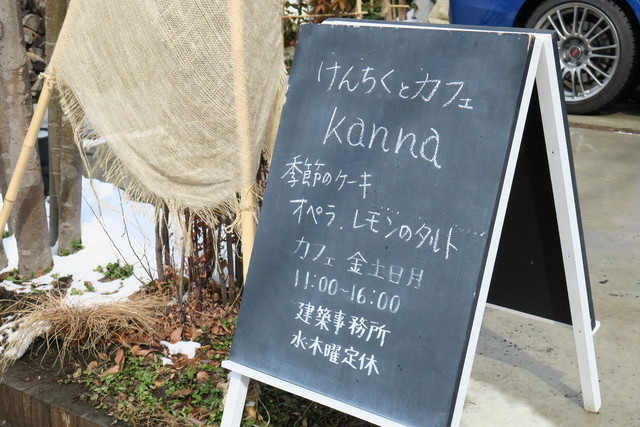 けんちくとカフェ
kanna
季節のケーキ
オペラ.レモンのタルト
カフェ 金土日月
11:00~16:00
建築事務所
水木曜定休